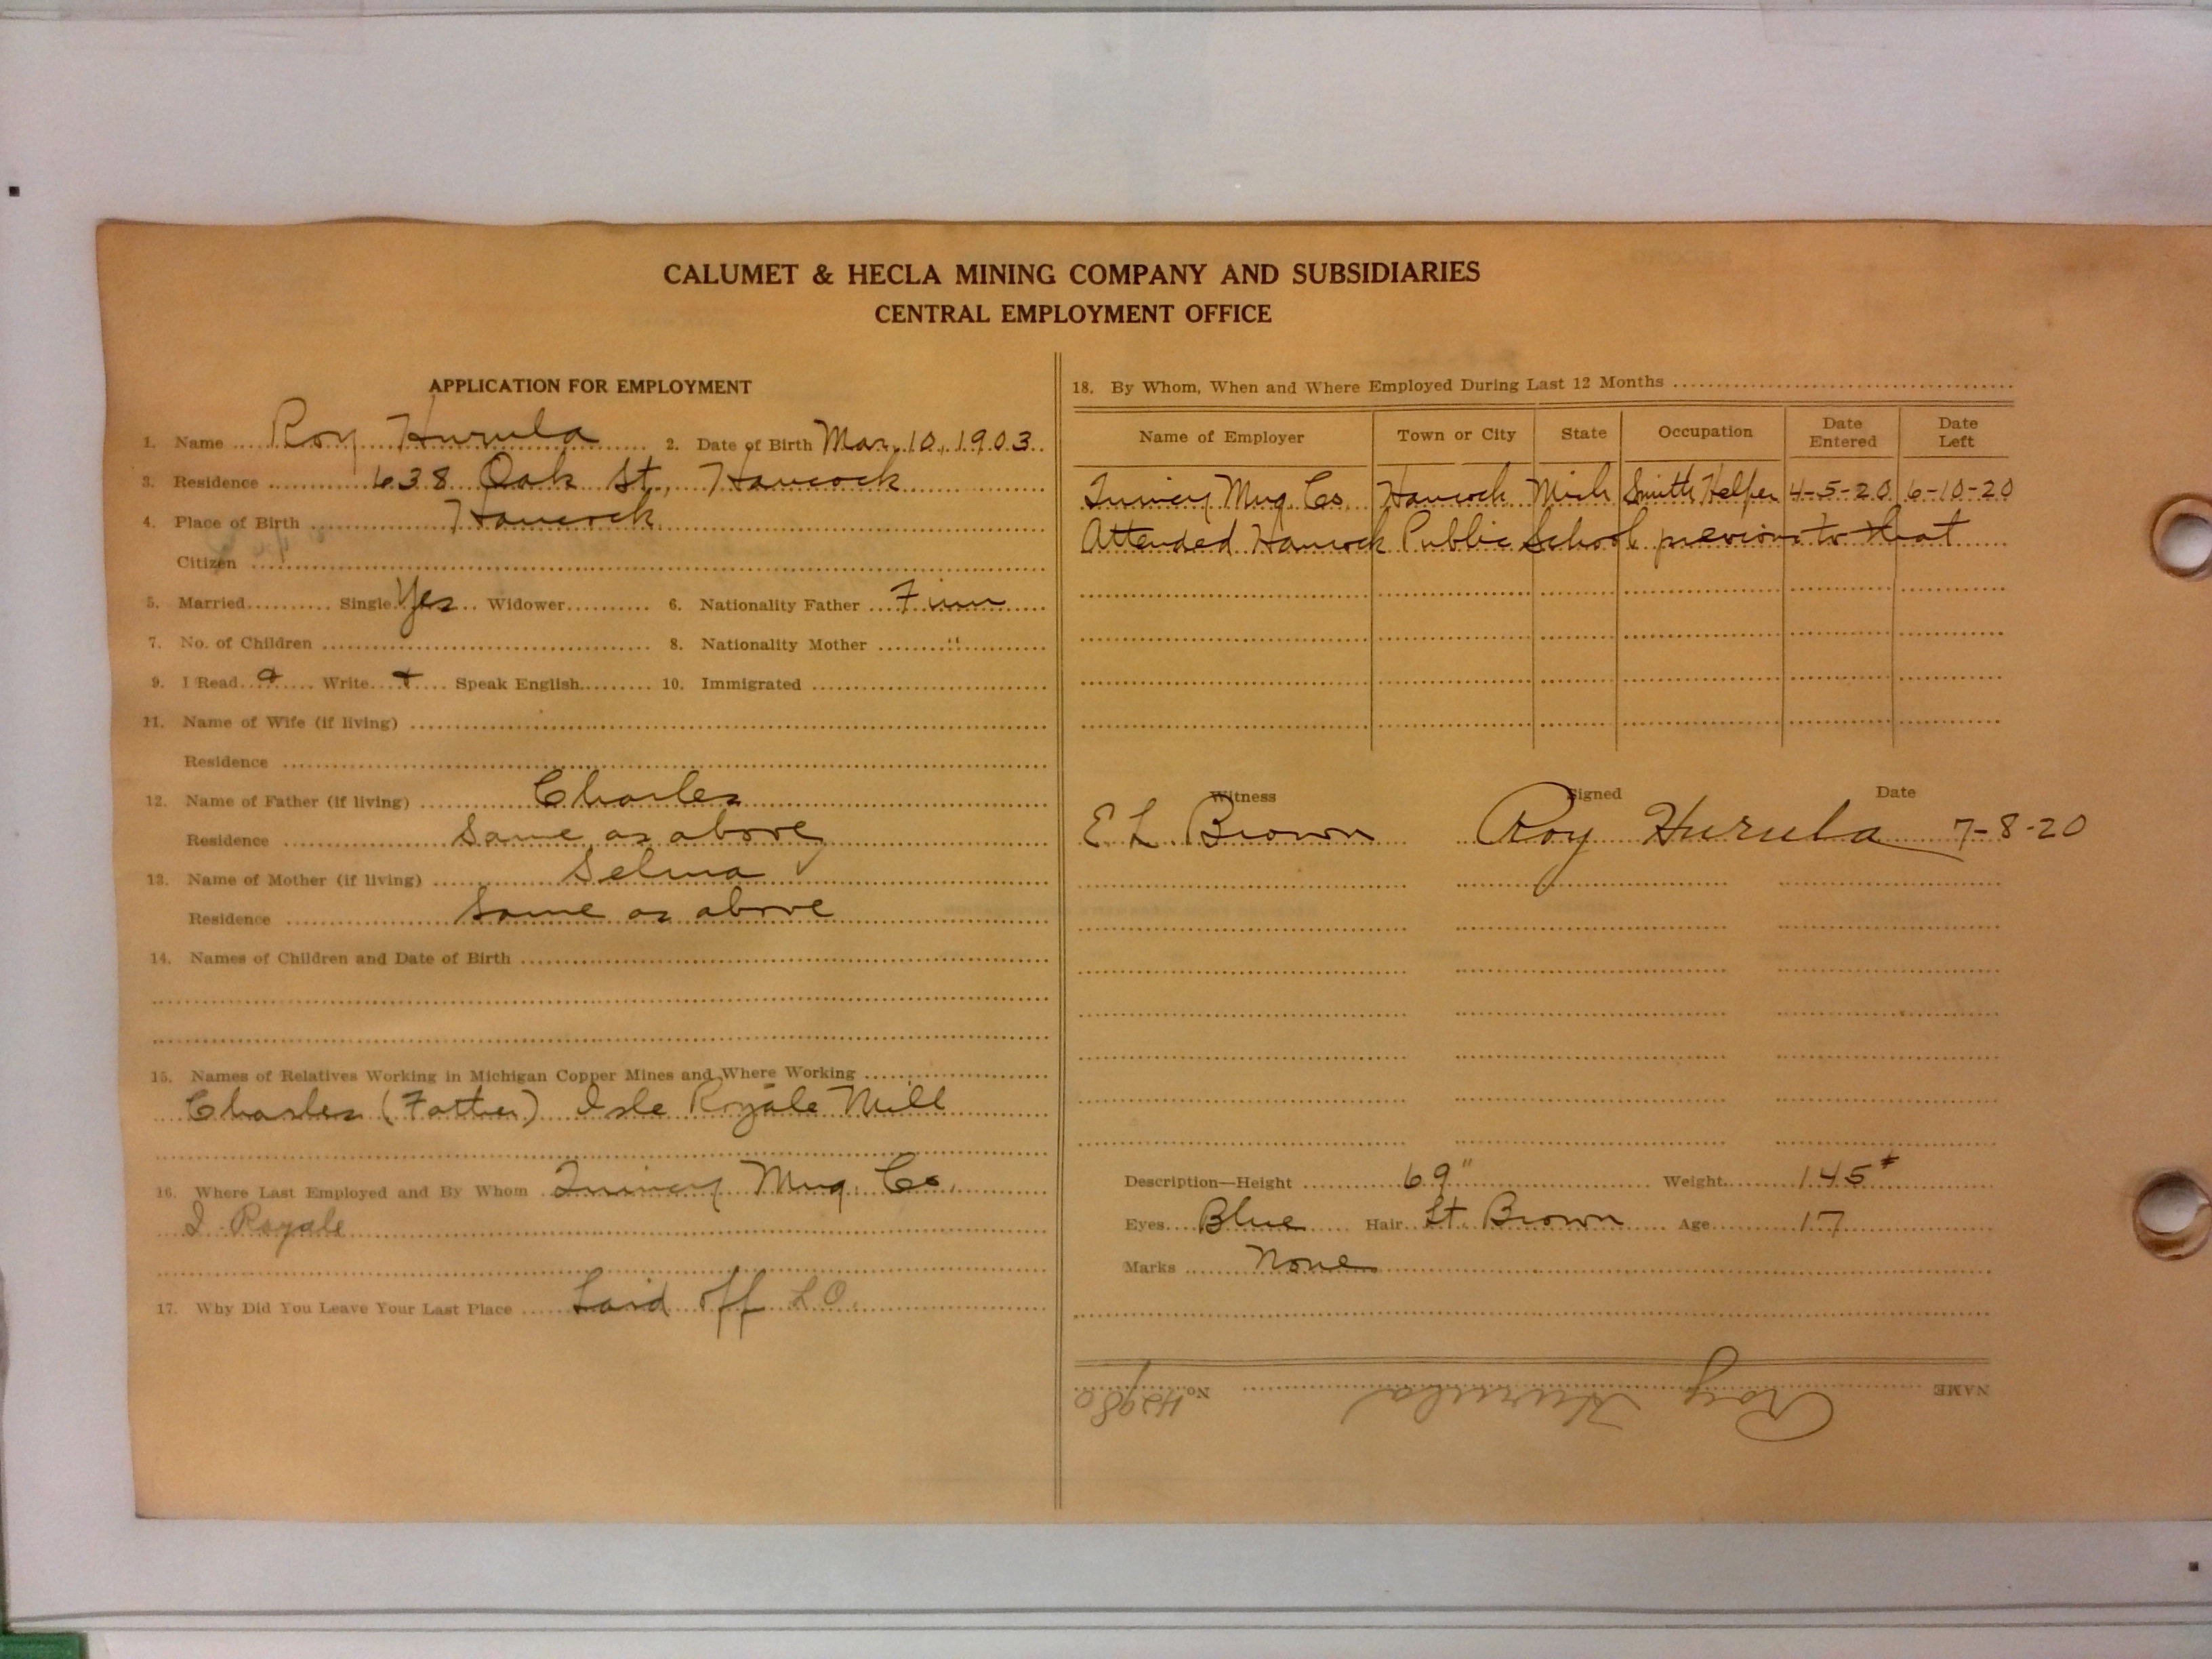 CALUMET & HECLA MINING COMPANY AND SUBSIDIARIES
CENTRAL EMPLOYMENT OFFICE
APPLICATION FOR EMPLOYMENT
1. Name Roy Hurula 2. Date of Birth Mar. 10, 1903
3. Residence 638 Oak St., Hancock
4. Place of Birth Hancock
Citizen
5. Married Single Yes Widower 6. Nationality Father Finn
7. No. of Children 8. Nationality Mother "
9. I Read Write + Speak English 10. Immigrated
11. Name of Wife (if living)
Residence
12. Name of Father (if living) Charles
Residence Same as above
13. Name of Mother (if living) Selma
Residence Same as above
14. Names of Children and Date of Birth
15. Names of Relatives Working in Michigan Copper Mines and Where Working
Charles (Father) Isle Royale Mill
16. Where Last Employed and By Whom Quincy Mng. Co.
I. Royale
17. Why Did You Leave Your Last Place Laid off L.O.
18. By Whom, When and Where Employed During Last 12 Months
Name of Employer Town or City State Occupation Date Entered Date Left
Quincy Mng. Co. Hancock Mich Smith Helper 4-5-20 6-10-20
Attended Hancock Public School previous to that
Witness Signed Date
E. L. Brown Roy Hurula 7-8-20
Description—Height 69" Weight 145#
Eyes Blue Hair Lt. Brown Age 17
Marks None
NAME Roy Hurula No. 42980